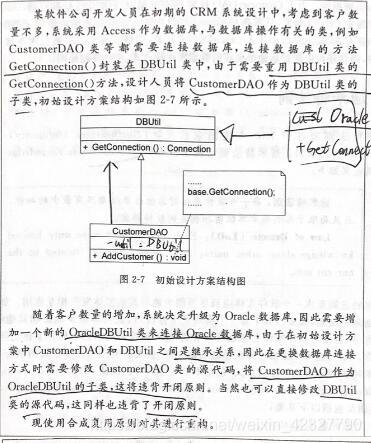 某软件公司开发人员在初期的 CRM 系统设计中，考虑到客户数
量不多，系统采用 Access 作为数据库，与数据库操作有关的类，例如
CustomerDAO 类等都需要连接数据库，连接数据库的方法
GetConnection()封装在 DBUtil 类中，由于需要重用 DBUtil 类的
GetConnection()方法，设计人员将 CustomerDAO 作为 DBUtil 类的
子类，初始设计方案结构如图 2-7 所示。
DBUtil
+ GetConnection () : Connection
Oracle
+GetConnect
……
base.GetConnection();
……
CustomerDAO
-util : DBUtil
+ AddCustomer () : void
图 2-7 初始设计方案结构图
随着客户数量的增加，系统决定升级为 Oracle 数据库，因此需要增
加一个新的 OracleDBUtil 类来连接 Oracle 数据库，由于在初始设计方
案中 CustomerDAO 和 DBUtil 之间是继承关系，因此在更换数据库连接
方式时需要修改 CustomerDAO 类的源代码，将 CustomerDAO 作为
OracleDBUtil 的子类，这将违背开闭原则。当然也可以直接修改 DBUtil
类的源代码，这同样也违背了开闭原则。
现使用合成复用原则对其进行重构。